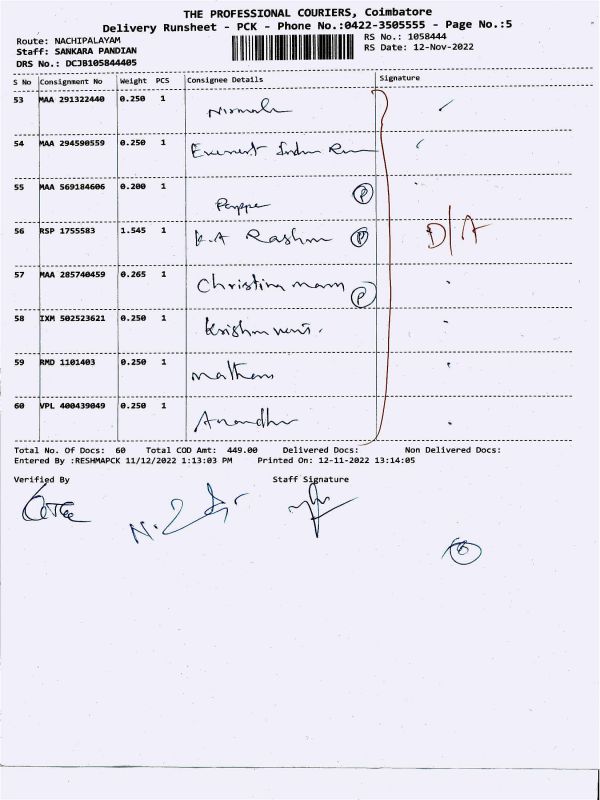 THE PROFESSIONAL COURIERS, Coimbatore
Delivery Runsheet - PCK - Phone No.:0422-3505555 - Page No.:5
Route: NACHIPALAYAM RS No.: 1058444
Staff: SANKARA PANDIAN RS Date: 12-Nov-2022
DRS No.: DCJB105844405
S No Consignment No Weight PCS Consignee Details Signature
53 MAA 291322440 0.250 1 Nirmala
54 MAA 294590559 0.250 1
55 MAA 569184606 0.200 1 P
56 RSP 1755583 1.545 1 K.A Rashmi P D/A
57 MAA 285740459 0.265 1 Christina mam P
58 IXM 502523621 0.250 1 Krishnaveni.
59 RMD 1101403 0.250 1 Mathan
60 VPL 400439049 0.250 1 Anandhi
Total No. Of Docs: 60 Total COD Amt: 449.00 Delivered Docs: Non Delivered Docs:
Entered By :RESHMAPCK 11/12/2022 1:13:03 PM Printed On: 12-11-2022 13:14:05
Verified By Staff Signature